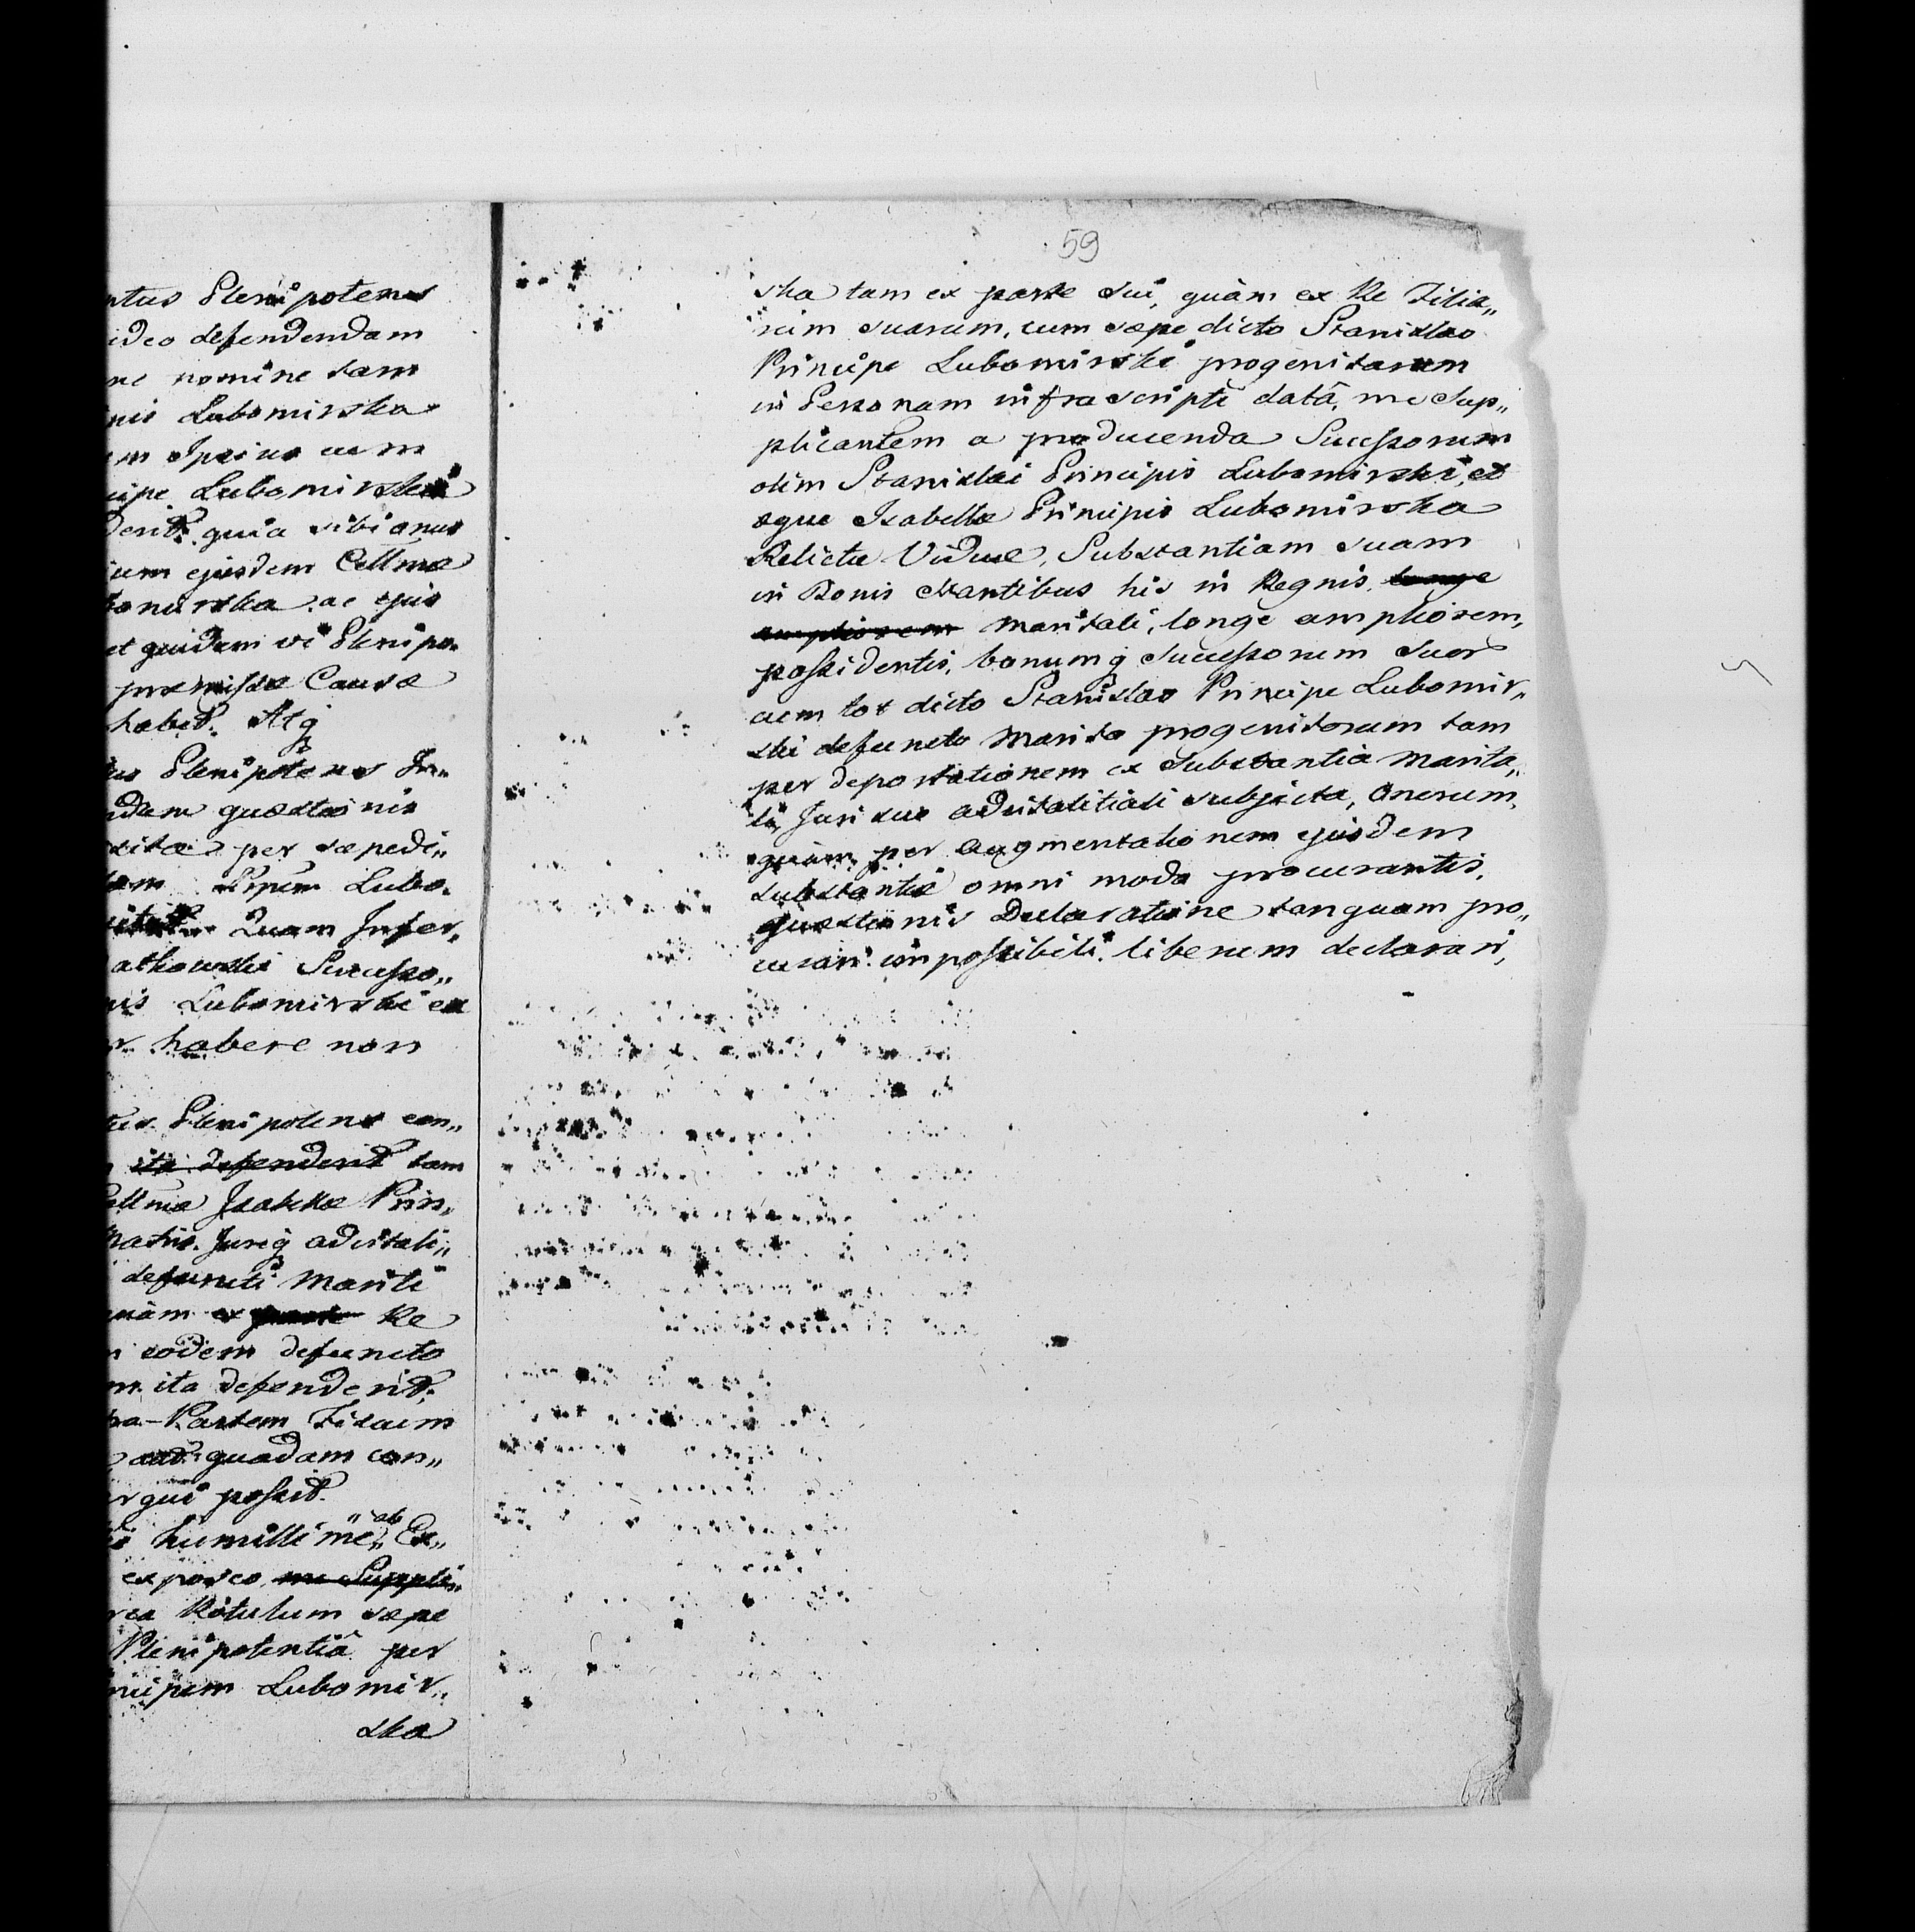 ntus Plenipotens
ideo defendendam
ne nomine tam
nis Lubomirska
em Ipsius cum
cipe Lubomirski
derit. quia sibi onus
um ejusdem Cellmae
bomirska ac ejus
et quidem vi Plenipo„
praemissae Causae
habet. Atq
us Plenipotens In„
ndam quaestionis
sitae per saepedi„
tam Ppem Lubo„
Quam Infor„
atkowski Successo„
nis Lubomirski ex
habere non
tus Plenipotens con„
ita defenderit tam
Cellmae Isabellae Prin„
Matris. Jureq advitali„
defuncti Mariti
quàm ex Re
eodem defuncto
m ita defenderit,
tra-Partem Fiscum
quadam con„
rgui possit.
humillime „ab„ Ex„
exposco me Suppli„
rca Rotulum saepe
Plenipotentiâ per
ncipem Lubomir„
ska
59
ska tam ex parte sui, quàm ex Re Filia„
rum suarum, cum saepe dicto Stanislao
Principe Lubomirski progenitarum
in Personam infrascripti datâ, me Sup„
plicantem a producenda Successorum
olim Stanislai Principis Lubomirski, et
aeque Isabellae Principis Lubomirska
Relictae Viduae, Substantiam suam
in Bonis extantibus his in Regnis, longe
ampliorem Maritali, longe ampliorem,
possidentis, bonumq Successorum suor
cum tot dicto Stanislao Principe Lubomir„
ski defuncto Marito progenitorum tam
per depostationem ex Substantia Marita„
li, Juri suo advitalitiali subjecta, Onerum,
quàm per augmentationem ejusdem
substantiae omni modo procurantis,
quaestionis Declaratione tanquam pro„
curari impossibili liberum declarari,